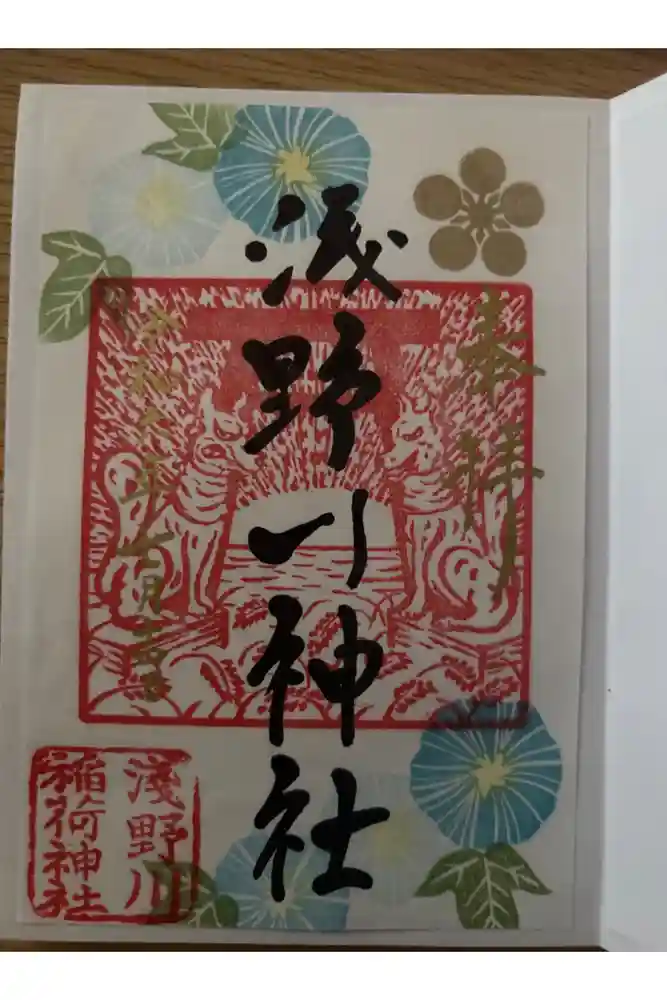 奉拝
浅野川神社
令和六年七月吉日
淺野川
稲荷神社